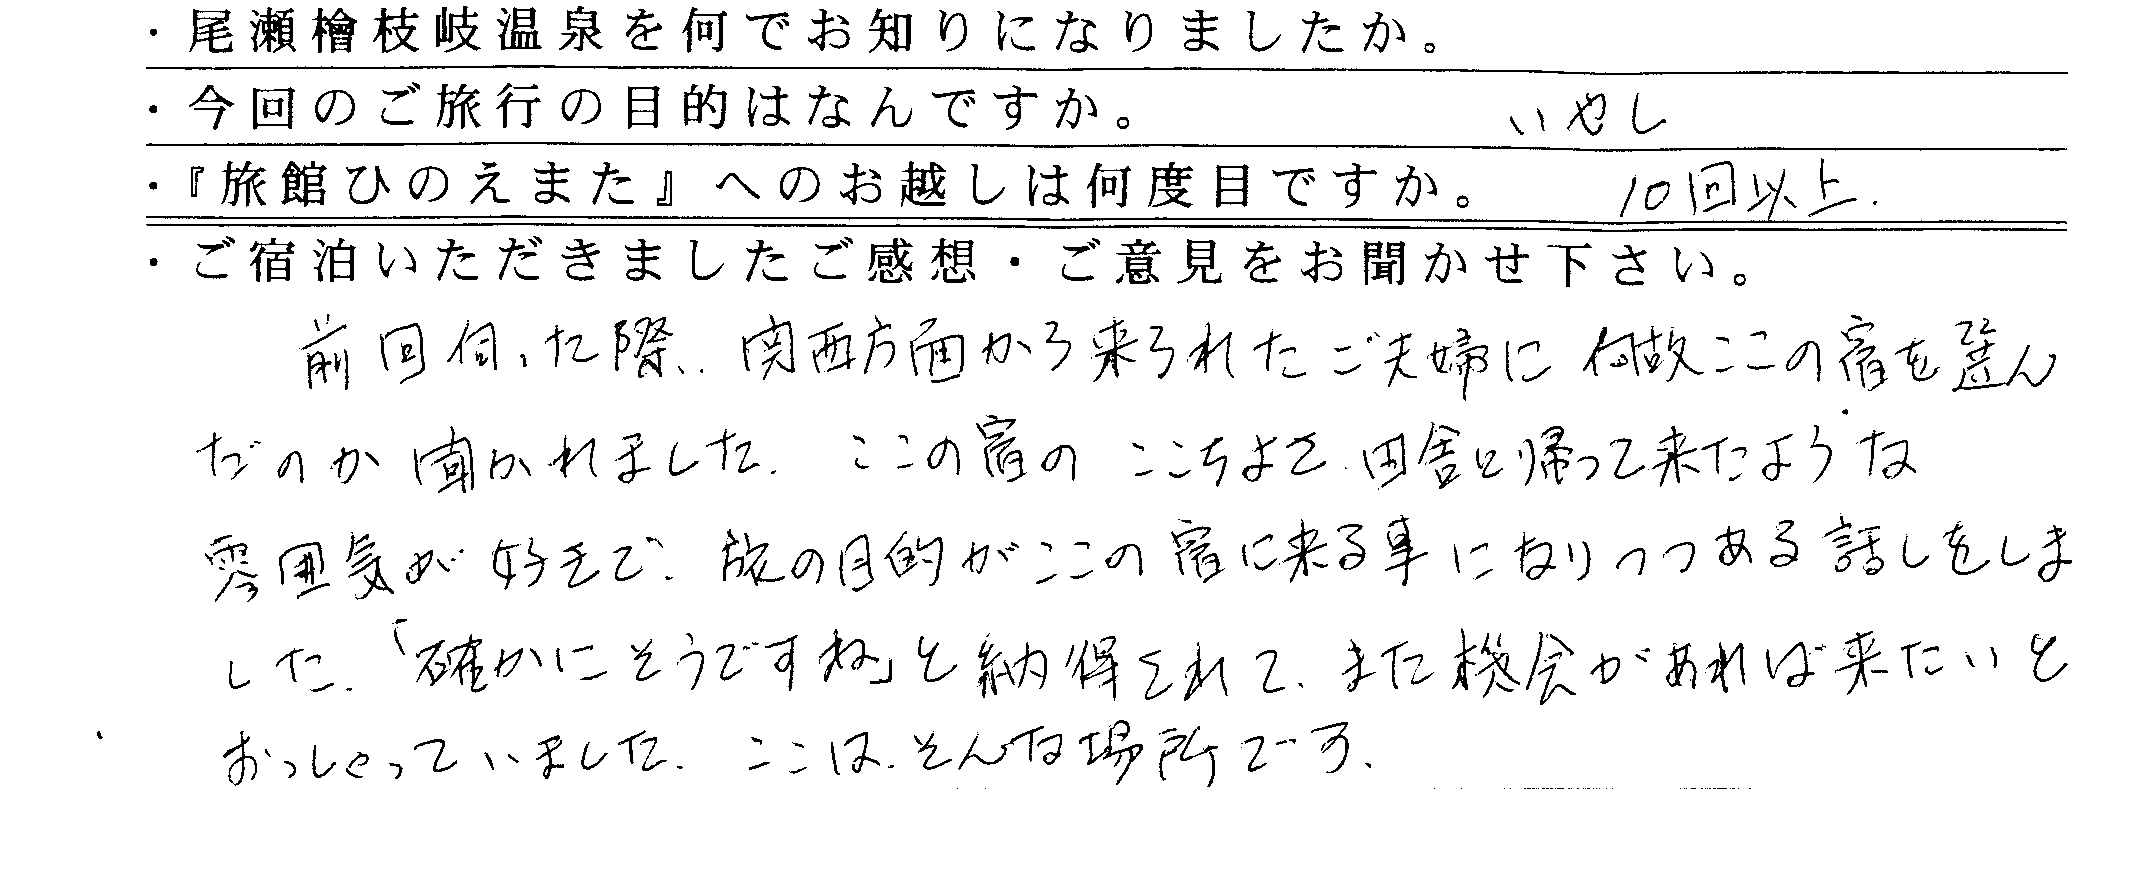 ・尾瀬檜枝岐温泉を何でお知りになりましたか。
・今回のご旅行の目的はなんですか。 いやし
・『旅館ひのえまた』へのお越しは何度目ですか。 10回以上.
・ご宿泊いただきましたご感想・ご意見をお聞かせ下さい。
前回伺った際、関西方面から来られたご夫婦に何故ここの宿を選ん
だのか聞かれました. ここの宿の ここちよさ、田舎に帰って来たような
雰囲気が好きで、旅の目的がここの宿に来る事になりつつある話しをしま
した.「確かにそうですね」と納得されて、また機会があれば来たいと
おっしゃっていました. ここは、そんな場所です.